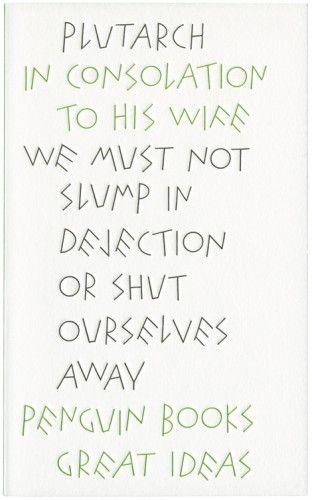 PLUTARCH
IN CONSOLATION
TO HIS WIFE
WE MUST NOT
SLUMP IN
DEJECTION
OR SHUT
OURSELVES
AWAY
PENGUIN BOOKS
GREAT IDEAS